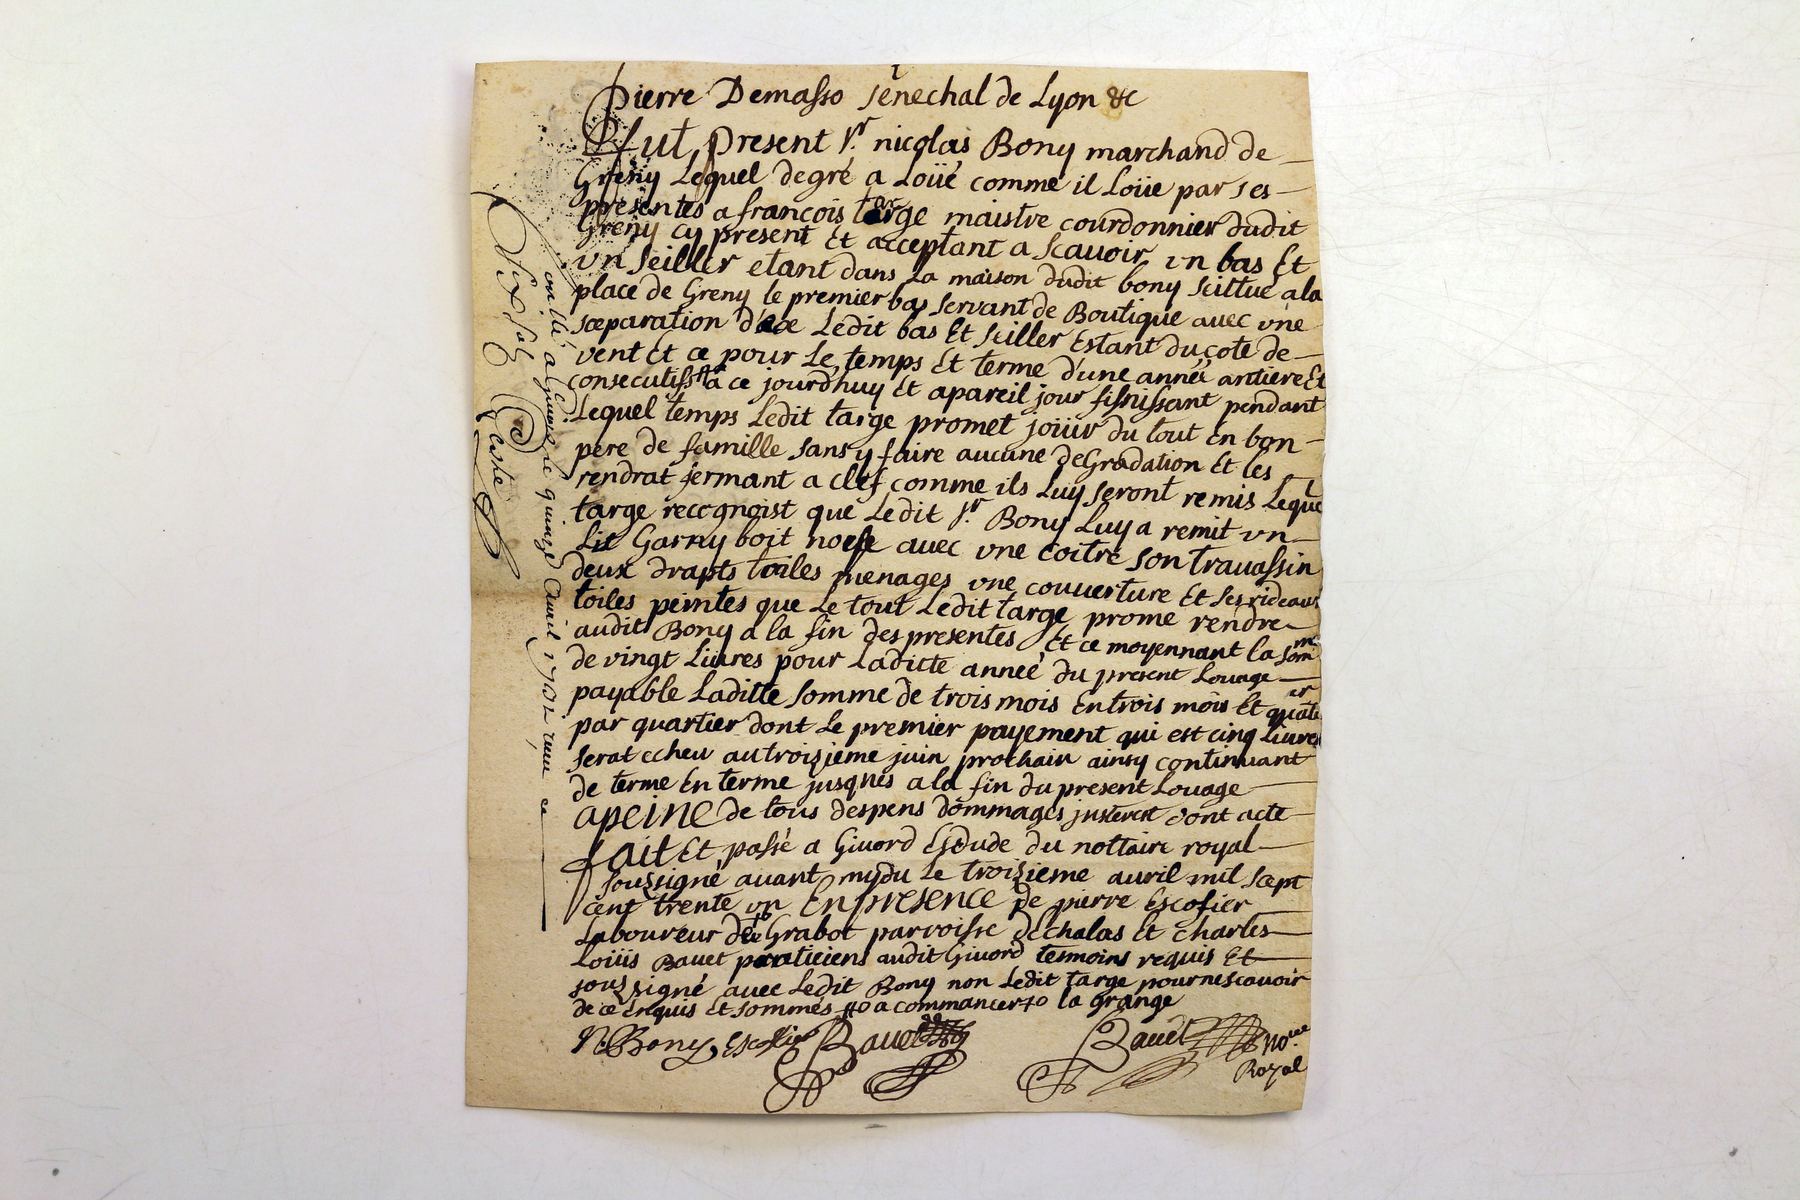 Pierre Demasso senechal de Lyon &c
Fut present Sr. nicolas Bony marchand de
Greny Lequel degré a Loüé comme il Loüe par ses
presentes a francois targe maistre courdonnier dudit
Greny cy present Et acceptant a Scauoir un bas Et
un Seiller etant dans La maison dudit bony Scittue a la
place de Greny le premier bas servant de Boutique auec une
sceparation d'aee Ledit bas Et Sciller Estant du cote de
vent Et ce pour Le temps Et terme d'une anneé antiere Et
consecutifs a ce jourdhuy Et apareil jour finissant pendant
Lequel temps Ledit targe promet joiiir du tout En bon
pere de famille sans y faire aucune deGradation Et les
rendrat fermant a clef comme ils Luy seront remis Leque
targe recognoist que Ledit Sr. Bony Luy a remit un
Lit Garny boit noese auec une coitre son trauassin
deux drapts toiles menages une couuerture Et ses rideaux
toiles peintes que Le tout Ledit targe prome rendre
audit Bony a la fin des presentes Et ce moyennant la somme
de vingt Liures pour Laditte anneé du present Louage
payable Laditte somme de trois mois En trois mois Et quatier
par quartier dont Le premier payement qui est cinq Liures
serat echeu au troisieme juin prochain ainsy continuant
de terme En terme jusques a la fin du present Louage
apeine de tous despens dommages jnterest dont acte
fait Et passé a Giuord Estude du nottaire royal
soussigné auant mydu Le troizieme auril mil scept
cent trente un En presence de pierre Escofier
Laboureur de Grabot parroisse de chalas Et charles
Loüis Bauet praticiens audit Giuord tesmoins requis Et
soussigné auec Ledit Bony non Ledit targe pour ne scauoir
de ce Enquis Et sommés a commancer la grange
N. Bony Escofier Bauet Bauet no.re
Royal
a giuord ce quinze Auril 1731 reçu
Six sols